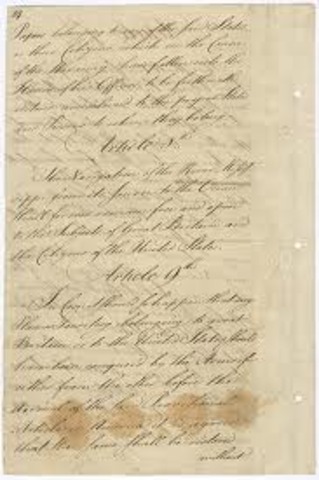 Papers belonging to any of the said States,
or their Citizens, which in the Course
of the War may have fallen into the
Hands of his Officers, to be forthwith
restored and delivered to the proper States
and Persons to whom they belong.
Article 8th
The Navigation of the River
from its source to the Ocean
shall for ever remain free and open
to the Subjects of Great Britain and
the Citizens of the United States.
Article 9th
In Case it should so happen that any
Place or Territory belonging to great
Britain or to the United States should
have been conquered by the Arms of
either from the other before the
Arrival of the said Provisional
Articles in America it is agreed
that the same shall be restored
without